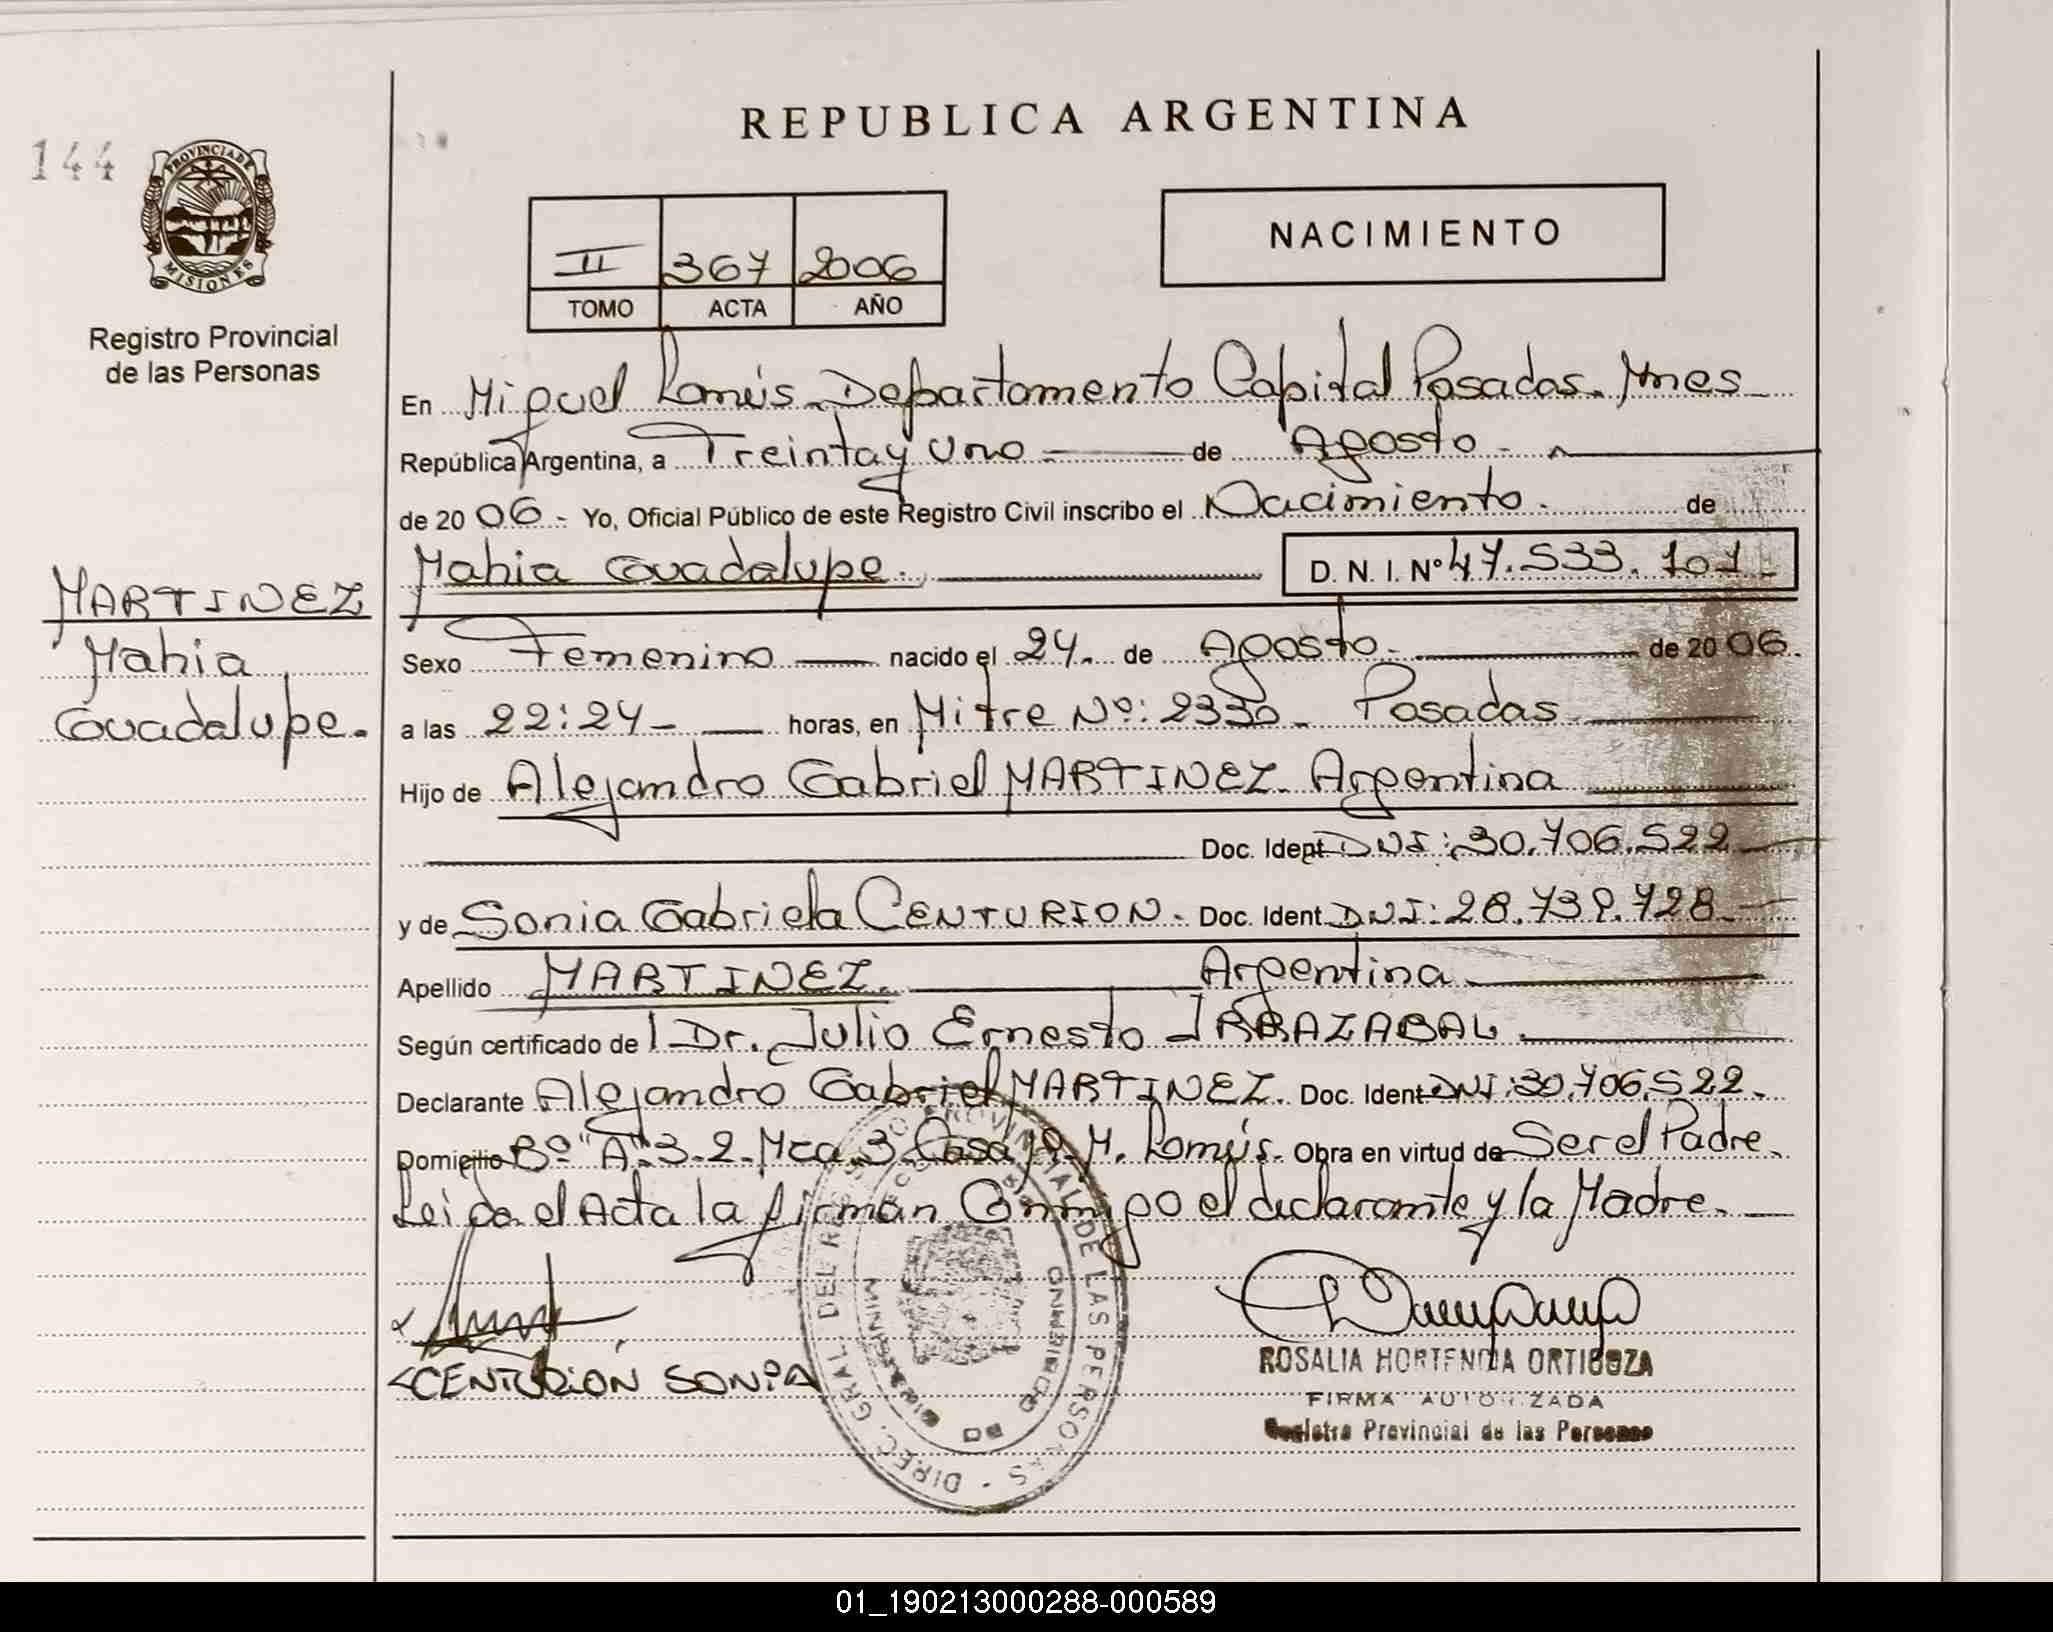 REPUBLICA ARGENTINA
144
PROVINCIA DE
MISIONES
Registro Provincial
de las Personas
II 367 2006
TOMO ACTA AÑO
NACIMIENTO
En Miguel Lanús. Departamento Capital Posadas. Mnes
República Argentina, a Treinta y Uno - de Agosto -
de 20 06 - Yo, Oficial Público de este Registro Civil inscribo el Nacimiento. de
Mahia Guadalupe. D. N. I. Nº 47.533.101 -
MARTINEZ
Mahia
Guadalupe.
Sexo Femenino nacido el 24. de Agosto. de 20 06.
a las 22:24 - horas, en Mitre Nº: 2330 - Posadas
Hijo de Alejandro Gabriel MARTINEZ. Argentina
Doc. Ident DNI: 30.706.522
y de Sonia Gabriela CENTURION. Doc. Ident DNI: 28.739.728
Apellido MARTINEZ. Argentina
Según certificado de l Dr. Julio Ernesto IRRAZABAL
Declarante Alejandro Gabriel MARTINEZ. Doc. Ident DNI: 30.706.522.
Domicilio Bº "A" 3-2. Mza 3 Casa 19. M. Lanús. Obra en virtud de Ser el Padre.
Leida el Acta la firman Conmigo el declarante y la Madre.
CENTURION SONIA
DIREC. GRAL DEL REGISTRO PROVINCIAL DE LAS PERSONAS
MINISTERIO DE GOBIERNO
ROSALIA HORTENCIA ORTIGOZA
FIRMA AUTORIZADA
Registro Provincial de las Personas
01_190213000288-000589